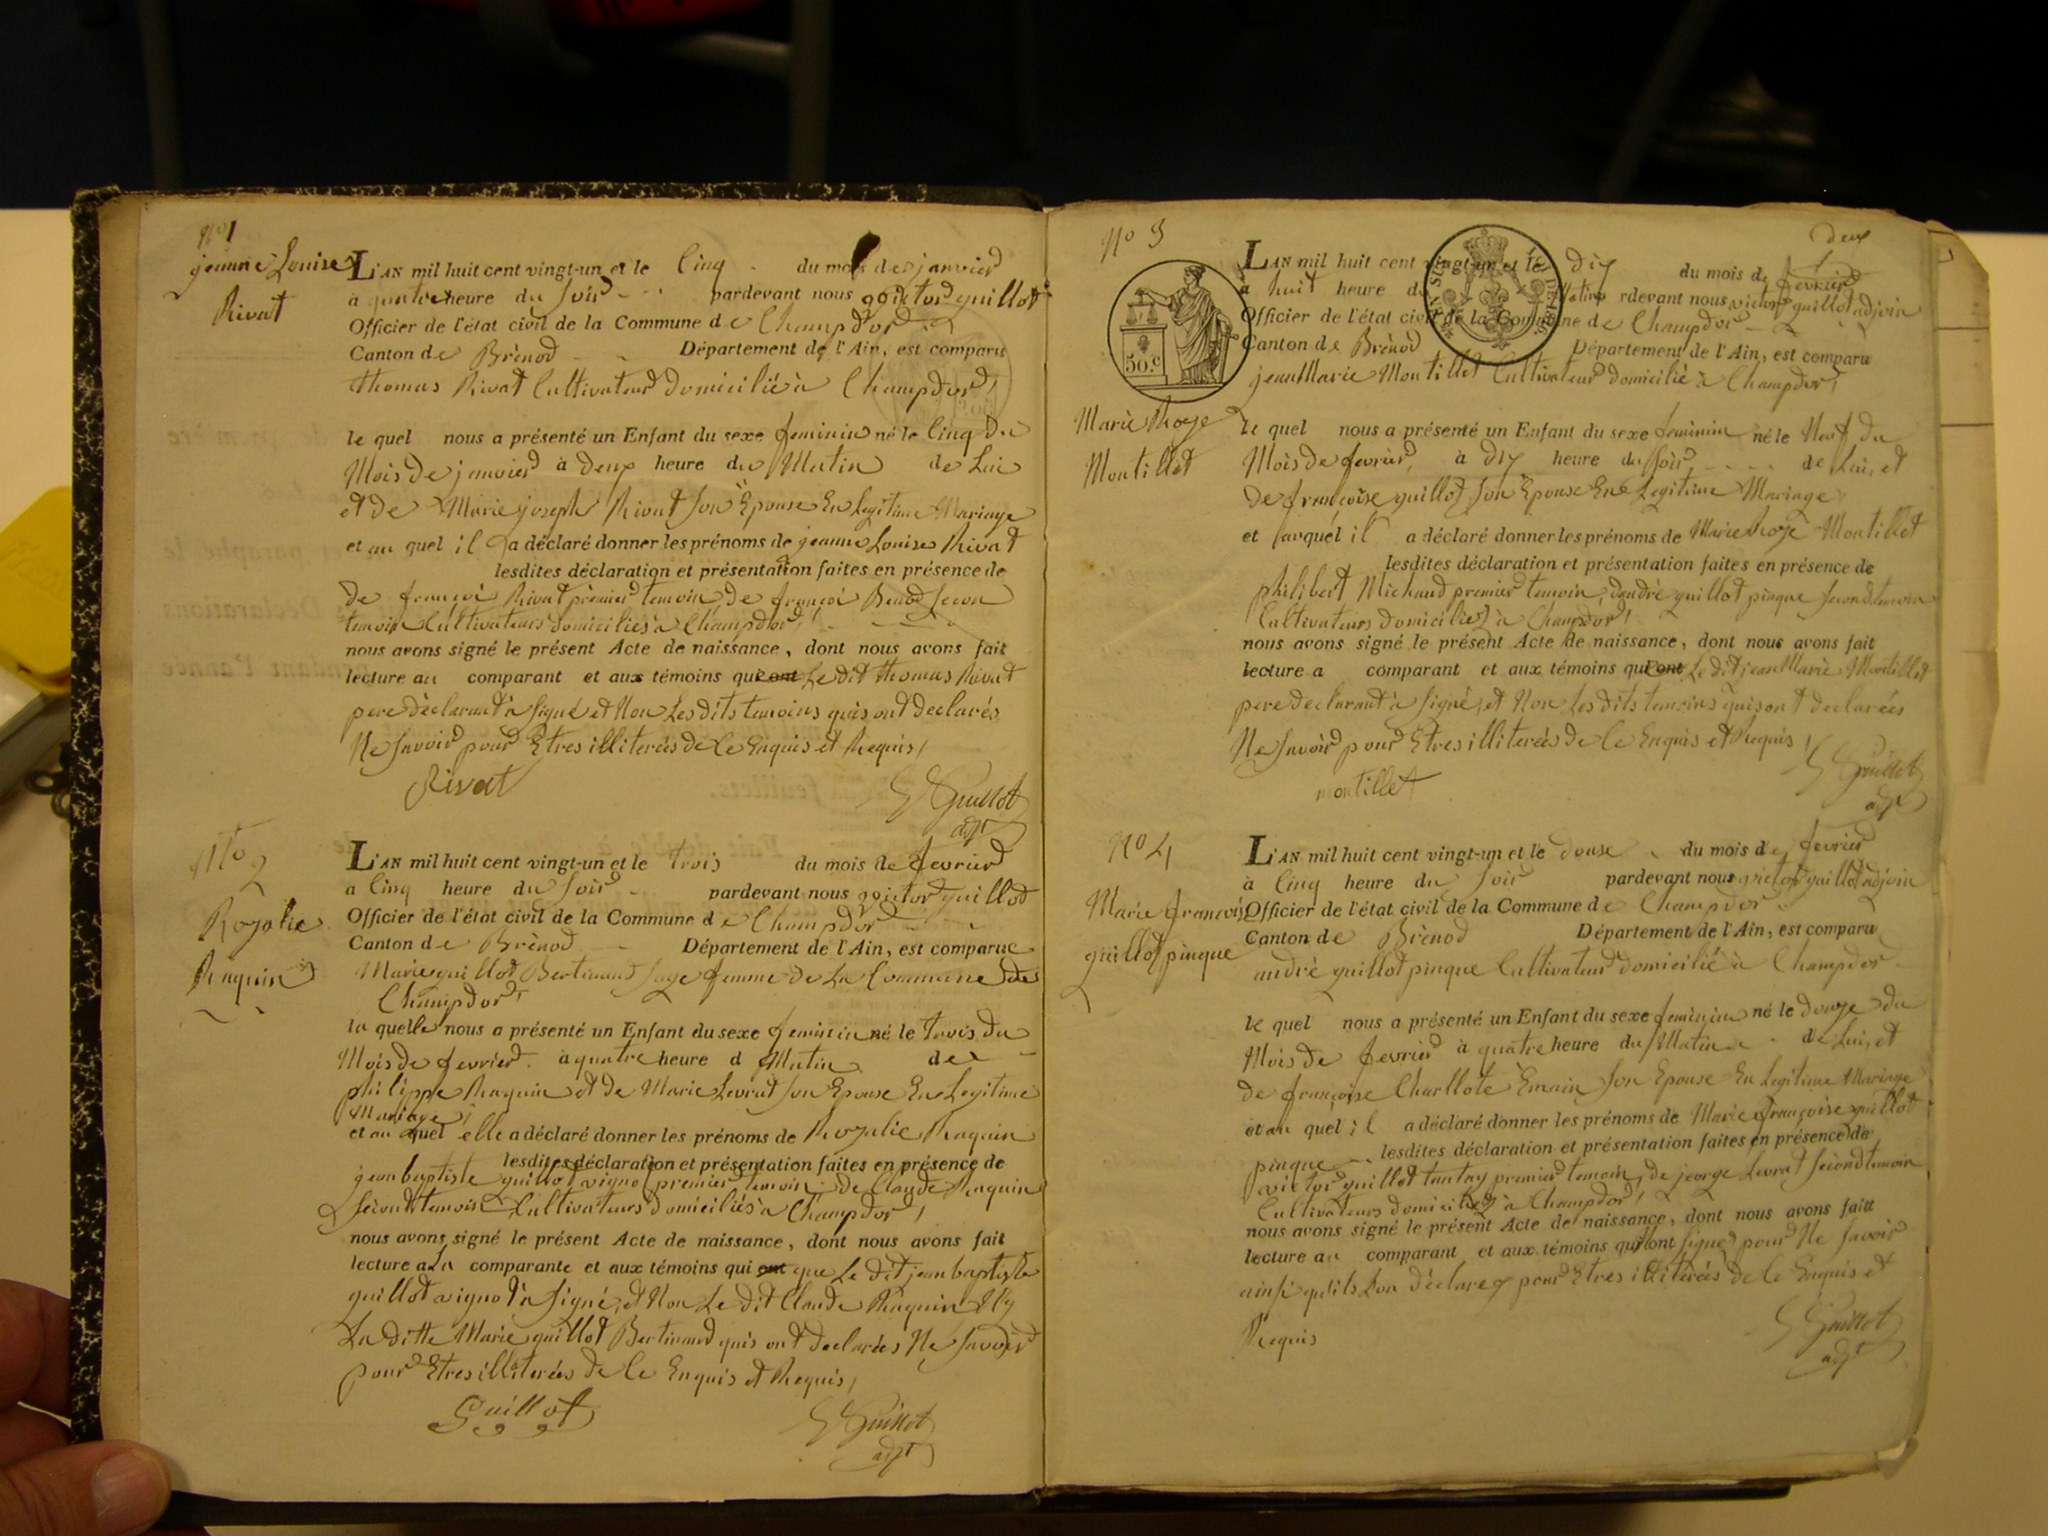 No 1
jeanne Louise
Rivat
L'AN mil huit cent vingt-un et le Cinq du mois de janvier
à quatre heure du Soir pardevant nous victor guillot
Officier de l'état civil de la Commune de Champdor
Canton de Brénod Département de l'Ain, est comparu
thomas Rivat Cultivateur domicilié à Champdor,
le quel nous a présenté un Enfant du sexe feminin né le Cinq du
Mois de janvier à deux heure du Matin de Lui
et de Marie joseph Rivat Son Epouse En Legitime Mariage
et au quel il a déclaré donner les prénoms de jeanne Louise Rivat
lesdites déclaration et présentation faites en présence de
de françoi Rivat premier temoin de françoi Benod Secon
temoin Cultivateurs domiciliés à Champdor,
nous avons signé le présent Acte de naissance, dont nous avons fait
lecture au comparant et aux témoins qui ont Le dit thomas Rivat
pere déclarant à Signé et Non Les dits temoins quis ont declarés
Ne Savoir pour Etres illiterées de Ce Enquis et Requis,
Rivat
Guillot
adjt
No 2
Rozalie
Raquin
L'AN mil huit cent vingt-un et le trois du mois de fevrier
a Cinq heure du Soir pardevant nous victor guillot
Officier de l'état civil de la Commune de Champdor
Canton de Brénod Département de l'Ain, est comparue
Marie guillot Bertinand Sage femme de La Commune de
Champdor,
la quelle nous a présenté un Enfant du sexe feminin né le trois du
Mois de fevrier à quatre heure d Matin de
philippe Raquin et de Marie Levrat Son Epouse En Legitime
Mariage,
et au quel elle a déclaré donner les prénoms de Rozalie Raquin
lesdites déclaration et présentation faites en présence de
jean baptiste guillot vignot premier temoin de Claude Raquin
Second temoin Cultivateurs domiciliés à Champdor,
nous avons signé le présent Acte de naissance, dont nous avons fait
lecture a La comparante et aux témoins qui ont que Le dit jean baptiste
guillot vignot à Signé, et Non Le dit Claude Raquin Ny
La ditte Marie guillot Bertinand quis ont declarées Ne Savoir
pour Etres illiterées de Ce Enquis et Requis,
Guillot
Guillot
adjt
deux
No 3
50.c
Marie Roze
Montillet
L'AN mil huit cent vingt-un et le dix du mois de fevrier
à huit heure du Matin rdevant nous victor guillot adjoin
Officier de l'état civil de la Commune de Champdor
Canton de Brénod Département de l'Ain, est comparu
jean Marie Montillet Cultivateur domicilié à Champdor,
le quel nous a présenté un Enfant du sexe feminin né le Neuf du
Mois de fevrier, à dix heure du Soir de Lui, et
de françoise guillot Son Epouse En Legitime Mariage
et auquel il a déclaré donner les prénoms de Marie Roze Montillet
lesdites déclaration et présentation faites en présence de
philibert Michaud premier temoin, dandré guillot pinque Second temoin
Cultivateurs domiciliez à Champdor,
nous avons signé le présent Acte de naissance, dont nous avons fait
lecture a comparant et aux témoins qui ont Le dit jean Marie Montillet
pere declarant à Signé, et Non Les dits temoins quis ont declarées
Ne Savoir pour Etres illiterées de Ce Enquis et Requis,
montillet
Guillot
adjt
No 4
Marie françoise
guillot pinque
L'AN mil huit cent vingt-un et le douse du mois de fevrier
à Cinq heure du Soir pardevant nous victor guillot adjoin
Officier de l'état civil de la Commune de Champdor
Canton de Brénod Département de l'Ain, est comparu
andré guillot pinque Cultivateur domicilié à Champdor
le quel nous a présenté un Enfant du sexe feminin né le douze du
Mois de fevrier à quatre heure du Matin de Lui, et
de françoise Charllote Emain Son Epouse En Legitime Mariage
et au quel il a déclaré donner les prénoms de Marie françoise guillot
pinque lesdites déclaration et présentation faites en présence de
victor guillot tantay premier temoin, de jeorge Levrat Second temoin
Cultivateurs domiciliez à Champdor,
nous avons signé le présent Acte de naissance, dont nous avons fait
lecture au comparant et aux témoins qui ont Signé pour Ne Savoir
ainsi quils Lon déclarez pour Etres illiterées de Ce Enquis et
Requis
Guillot
adjt